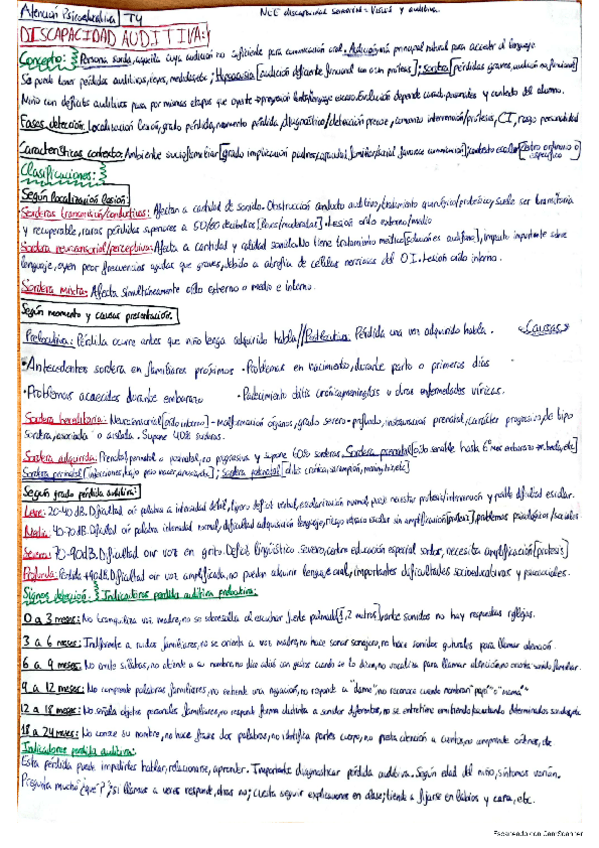 Atención Psicoeducativa | T4 NEE discapacidad sensorial: Visual y auditiva.
DISCAPACIDAD AUDITIVA:
Concepto: Persona sorda, aquella cuya audición no suficiente para comunicación oral. Audición vía principal natural para acceder al lenguaje
Se puede tener pérdidas auditivas, leves, moderadas, etc; Hipoacusia [audición deficiente funcional con o sin prótesis]; sordera [pérdidas graves, audición no funcional]
Niño con déficits auditivos pasa por mismas etapas que oyente Evolución depende y contexto del alumno.
Fases detección: Localización lesión, grado pérdida, momento pérdida, diagnóstico/detección precoz, comienzo intervención/prótesis, CI, rasgo personalidad
Características contexto: Ambiente sociofamiliar [grado implicación padres, comunicación] contexto escolar [centro ordinario o específico]
Clasificaciones:
Según localización lesión:
Sorderas transmisión/conductivas: Afectan a cantidad de sonido. Obstrucción conducto auditivo, tratamiento quirúrgico/protésico, suele ser transitoria
y recuperable, raras pérdidas superiores a 50/60 decibelios [leves/moderadas]. Lesión oído externo/medio
Sordera neurosensorial/perceptiva: Afecta a cantidad y calidad sonido. No tiene tratamiento médico audífono], impacto importante sobre
lenguaje, oyen peor frecuencias agudas que graves, debido a atrofia de células nerviosas del O.I. Lesión oído interno.
Sordera mixta: Afecta simultáneamente oído externo o medio e interno.
Según momento y causas presentación:
Prelocutiva: Pérdida ocurre antes que niño tenga adquirido habla // Postlocutiva: Pérdida una vez adquirido habla. <Causas>
• Antecedentes sordera en familiares próximos • Problemas en nacimiento, durante parto o primeros días
• Problemas acaecidos durante embarazo • Padecimiento otitis crónicas, meningitis u otras enfermedades víricas.
Sordera hereditaria: Neurosensorial [oído interno] - malformación órganos, grado severo - profundo, prenatal, carácter progresivo, de tipo
sordera, asociada o aislada. Supone 40% sorderas.
Sordera adquirida: Prenatal, perinatal o posnatal, no progresiva y supone 60% sorderas. Sordera prenatal [oído sensible hasta 6º mes embarazo etc]
Sordera perinatal [infecciones, bajo peso nacer, anoxia, etc]; sordera postnatal [otitis crónica, sarampión, meningitis, etc]
Según grado pérdida auditiva:
Leve: 20-40 dB. Dificultad oír palabra a intensidad débil, ligero déficit verbal, escolarización normal, puede necesitar prótesis/intervención y posible dificultad escolar.
Media: 40-70 dB. Dificultad oír palabra intensidad normal, dificultad adquisición lenguaje, riesgo retraso escolar sin amplificación [prótesis], problemas psicológicos/sociales
Severa: 70-90dB. Dificultad oír voz en grito. Déficit lingüístico severo, centro educación especial sordos, necesita amplificación [prótesis]
Profunda: Pérdida +90dB. Dificultad oír voz amplificada, no pueden adquirir lenguaje oral, importantes dificultades socioeducativas y psicosociales.
Signos detección: Indicadores pérdida auditiva
0 a 3 meses: No tranquiliza voz madre, no se sobresalta al escuchar fuerte palmada [1,2 metros], ante sonidos no hay respuestas reflejas.
3 a 6 meses: Indiferente a ruidos familiares, no se orienta a voz madre, no hace sonar sonajero, no hace sonidos guturales para llamar atención.
6 a 9 meses: No emite sílabas, no atiende a su nombre, no dice adiós con gestos cuando se lo dicen, no vocaliza para llamar atención familiar.
9 a 12 meses: No comprende palabras familiares, no entiende una negación, no responde a "dame", no reconoce cuando nombran "papá" o "mamá"
12 a 18 meses: No señala objetos personales, familiares, no responde forma distinta a sonidos diferentes, no se entretiene emitiendo/escuchando determinados sonidos, etc
18 a 24 meses: No conoce su nombre, no hace frases dos palabras, no identifica partes cuerpo, no presta atención a cuentos, no comprende órdenes, etc
Indicadores pérdida auditiva:
Esta pérdida puede impedirles hablar, relacionarse, aprender. Importante diagnosticar pérdida auditiva. Según edad del niño, síntomas varían.
Pregunta mucho "¿qué?"; si llamas a veces responde, otras no; cuesta seguir explicaciones en clase; tiende a fijarse en labios y cara, etc.
Escaneado con CamScanner